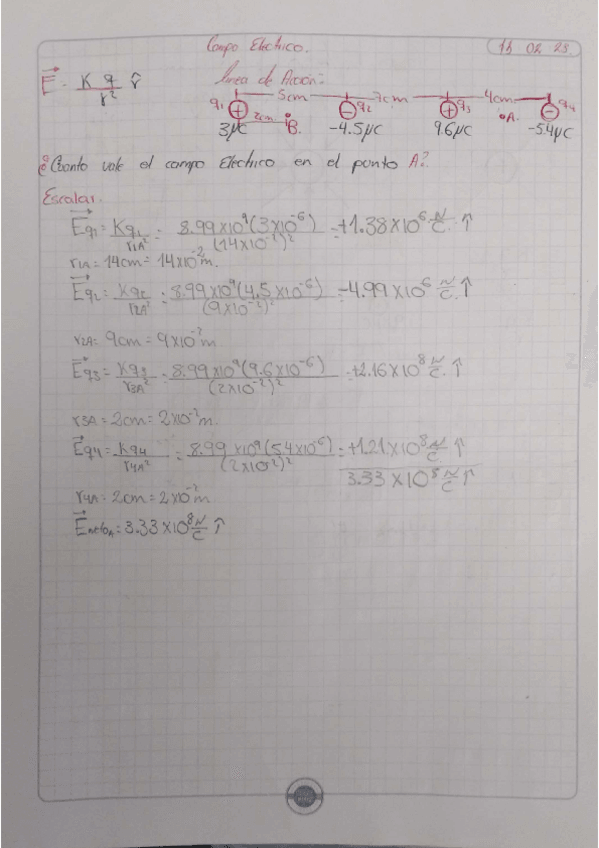 Campo Electrico. 13 02 25
E = K q / r² r̂ Linea de Acción:
5cm 7cm 4cm
q1 ⊕ 2cm B. ⊖ q2 ⊕ q3 A. ⊖ q4
3μC -4.5μC 9.6μC -5.4μC
¿Cuanto vale el campo Electrico en el punto A?
Escalar.
Eq1 = Kq1 / r1A² = 8.99x10⁹(3x10⁻⁶) / (14x10⁻²)² = +1.38x10⁶ N/C ↑
r1A = 14cm = 14x10⁻² m.
Eq2 = Kq2 / r2A² = 8.99x10⁹(4.5x10⁻⁶) / (9x10⁻²)² = -4.99x10⁶ N/C ↑
r2A = 9cm = 9x10⁻² m
Eq3 = Kq3 / r3A² = 8.99x10⁹(9.6x10⁻⁶) / (2x10⁻²)² = +2.16x10⁸ N/C ↑
r3A = 2cm = 2x10⁻² m.
Eq4 = Kq4 / r4A² = 8.99 x10⁹(5.4x10⁻⁶) / (2x10⁻²)² = +1.21x10⁸ N/C ↑
3.33x10⁸ N/C ↑
r4A = 2cm = 2x10⁻² m
EnetoA = 3.33x10⁸ N/C ↑